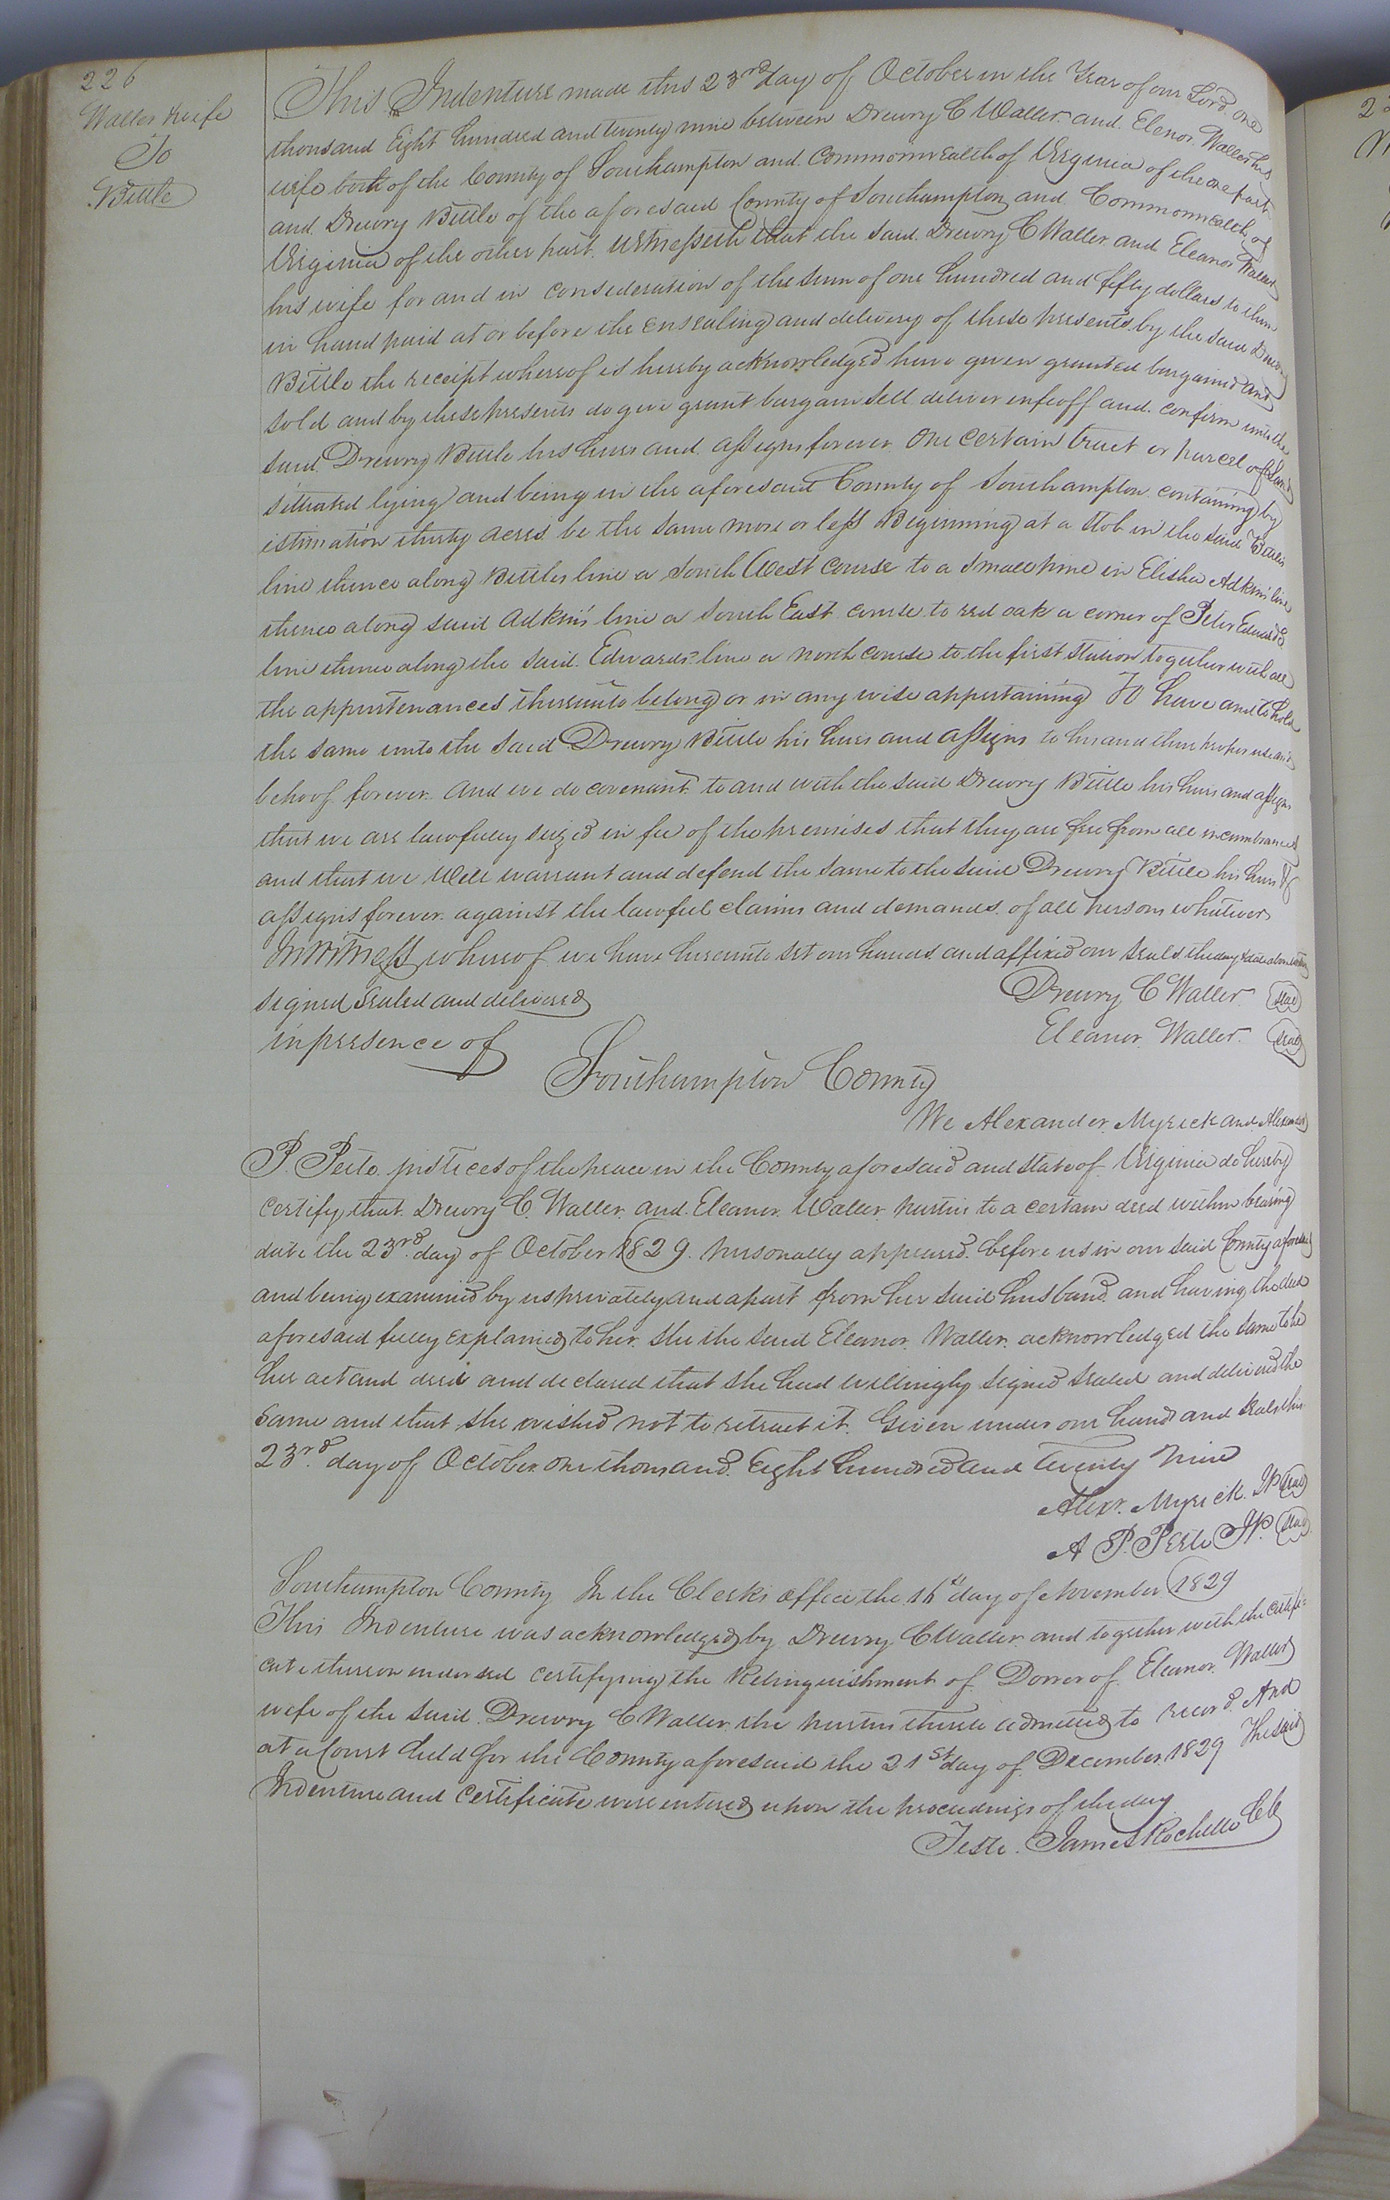 226
Waller & wife
To
Bittle
This Indenture made this 23rd day of October in the Year of our Lord one
thousand Eight hundred and twenty nine between Drewry C Waller and Elenor Waller his
wife both of the County of Southampton and Commonwealth of Virginia of the one part
and Drewry Bittle of the aforesaid County of Southampton and Commonwealth of
Virginia of the other part. Witnesseth that the said Drewry C Waller and Eleanor Waller
his wife for and in consideration of the sum of one hundred and fifty dollars to them
in hand paid at or before the ensealing and delivery of these presents by the said Drewry
Bittle the receipt whereof is hereby acknowledged have given granted bargained and
sold and by these presents do give grant bargain sell deliver enfeoff and confirm unto the
said Drewry Bittle his heirs and assigns forever one certain tract or parcel of Land
situated lying and being in the aforesaid County of Southampton containing by
estimation thirty acres be the same more or less Beginning at a stob in the said
line thence along Bittles line a South West course to a small pine in Elisha Adkins line
thence along said Adkins line a South East course to red oak a corner of Peter Edwards
line thence along the said Edwards line a north course to the first station together with all
the appurtenances thereunto belong or in any wise appertaining To have and to hold
the same unto the said Drewry Bittle his heirs and assigns to his and their proper use and
behoof forever. And we do covenant to and with the said Drewry Bittle his heirs and assigns
that we are lawfully seized in fee of the premises that they are free from all incumbrances
and that we will warrant and defend the same to the said Drewry Bittle his heirs &
assigns forever against the lawful claims and demands of all persons whatever
In witness whereof we have hereunto set our hands and affixed our seals the day & date above
signed sealed and delivered Drewry C Waller (seal)
in presence of Eleanor Waller (seal)
Southampton County
We Alexander Myrick and Alexander
P. Peete justices of the peace in the County aforesaid and State of Virginia do hereby
certify that Drewry C. Waller and Eleanor Waller parties to a certain deed within bearing
date the 23rd day of October 1829 personally appeared before us in our said County aforesaid
and being examined by us privately and apart from her said husband and having the deed
aforesaid fully explained to her she the said Eleanor Waller acknowledged the same to be
her act and deed and declared that she had willingly signed sealed and delivered the
same and that she wished not to retract it. Given under our hands and seals this
23rd day of October one thousand Eight hundred and Twenty Nine
Alexr. Myrick JP (seal)
A P. Peete JP. (seal)
Southampton County In the Clerks office the day of November 1829
This Indenture was acknowledged by Drewry C Waller and together with the certifi-
cate thereon endorsed certifying the Relinquishment of Dower of Eleanor Waller
wife of the said Drewry C Waller the parties thereto admitted to record And
at a Court held for the County aforesaid the 21st day of December 1829 The said
Indenture and Certificate were entered upon the proceedings of the day
Teste. James Rochelle